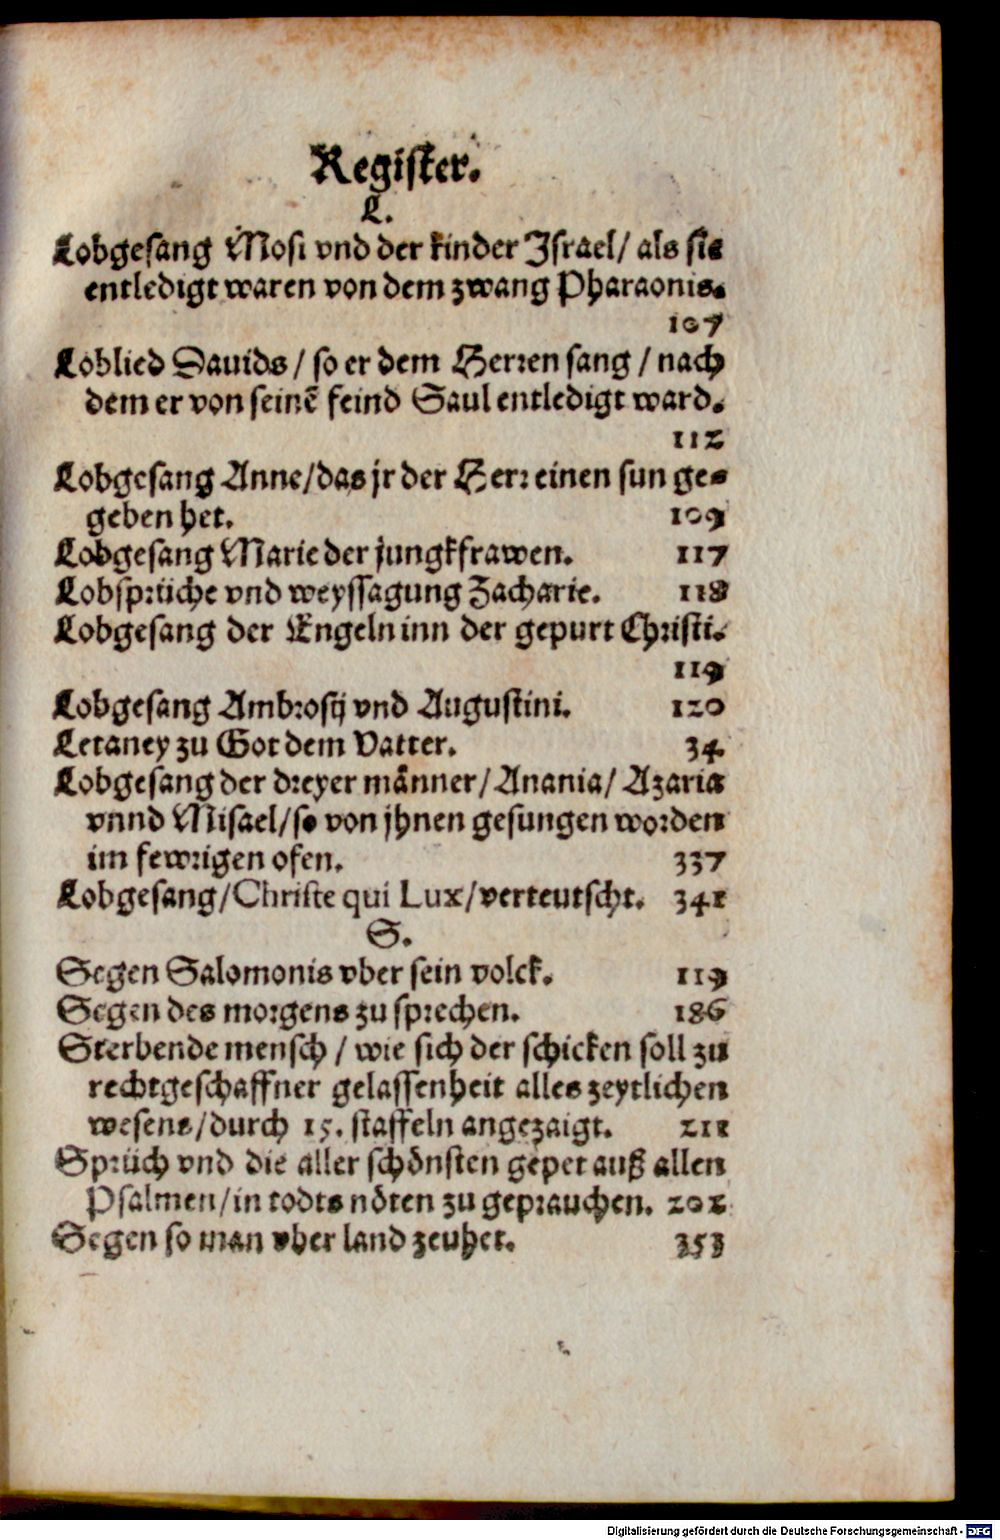 Register.
L.
Lobgesang Mosi vnd der kinder Israel/ als sie
entledigt waren von dem zwang Pharaonis.
107
Loblied Dauids/ so er dem Herren sang/ nach
dem er von seinē feind Saul entledigt ward.
112
Lobgesang Anne/das jr der Herr einen sun ge-
geben het. 109
Lobgesang Marie der jungkfrawen. 117
Lobsprüche vnd weyssagung Zacharie. 118
Lobgesang der Engeln inn der gepurt Christi.
119
Lobgesang Ambrosij vnd Augustini. 120
Letaney zu Got dem Vatter. 34.
Lobgesang der dreyer männer/ Anania/ Azaria
vnnd Misael/so von jhnen gesungen worden
im fewrigen ofen. 337
Lobgesang/Christe qui Lux/verteutscht. 341
S.
Segen Salomonis vber sein volck. 119
Segen des morgens zu sprechen. 186
Sterbende mensch/ wie sich der schicken soll zu
rechtgeschaffner gelassenheit alles zeytlichen
wesens/durch 15. staffeln angezaigt. 211
Sprüch vnd die aller schönsten gepet auß allen
Psalmen/in todts nöten zu geprauchen. 202
Segen so man vber land zeuhet. 353
Digitalisierung gefördert durch die Deutsche Forschungsgemeinschaft - DFG